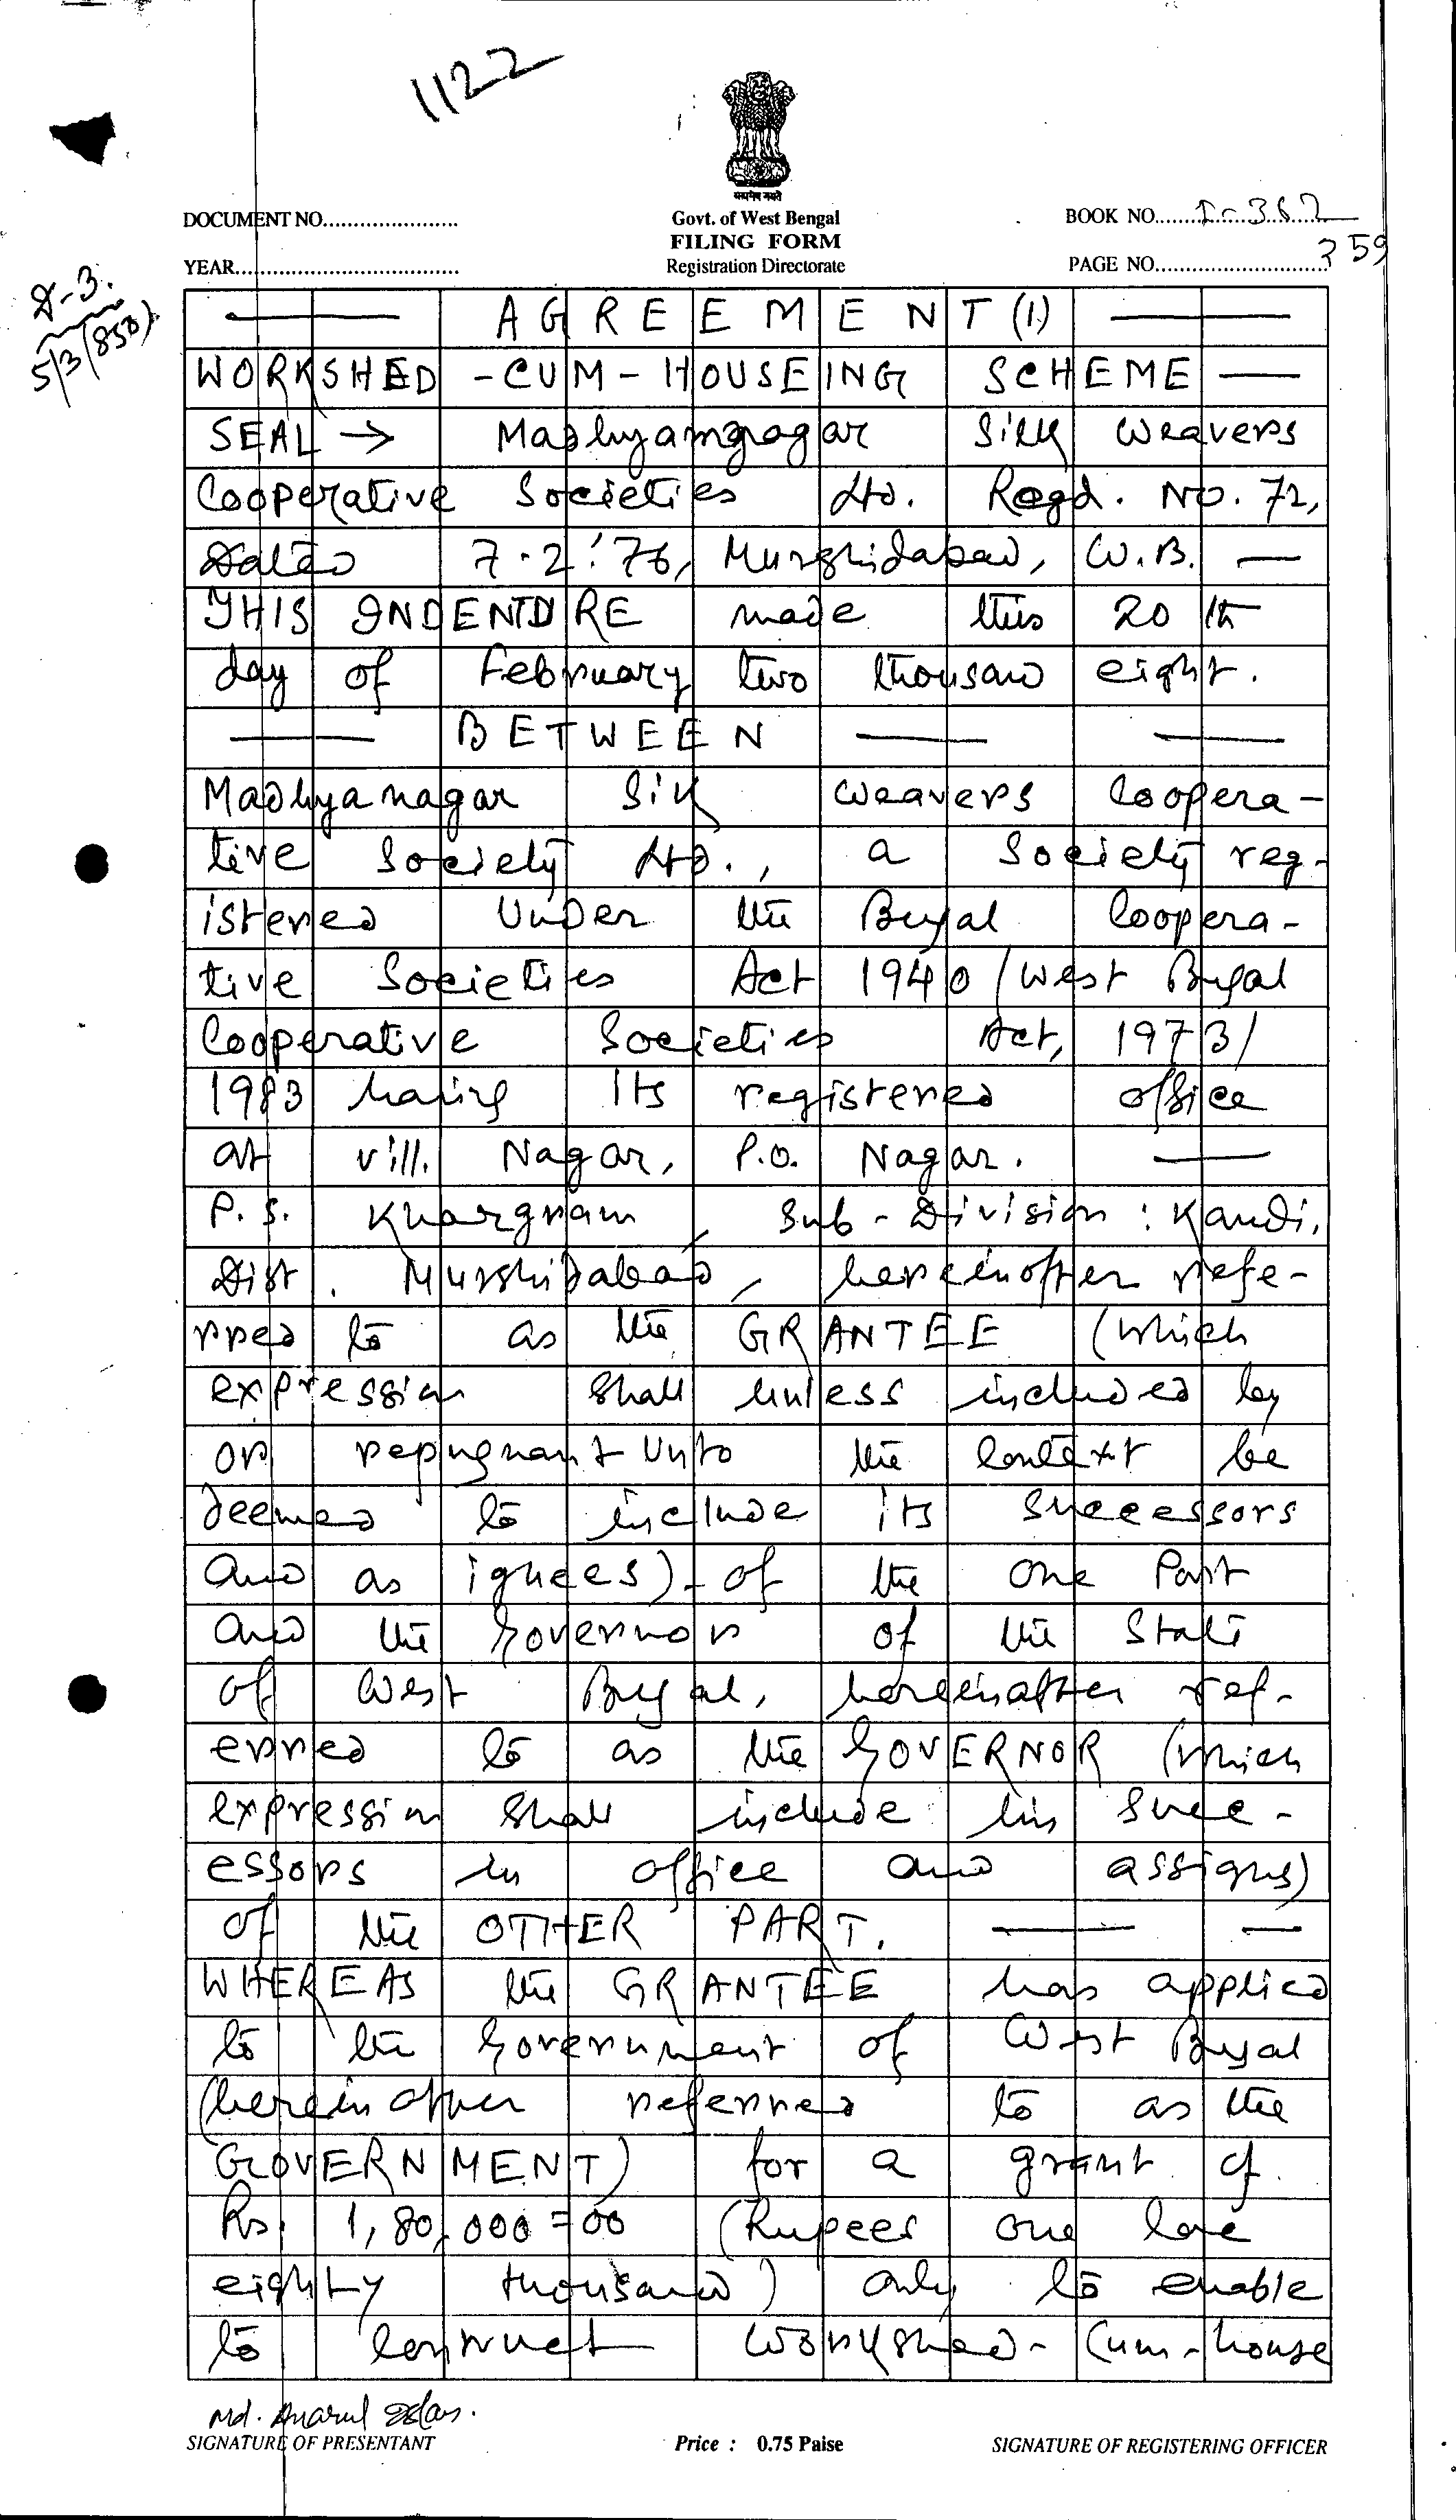 1122
सत्यमेव जयते
DOCUMENT NO.......................
Govt. of West Bengal
BOOK NO........I-362
FILING FORM
YEAR..................................
Registration Directorate
PAGE NO...........................359
5/3/(850)
— AGREEMENT (1) —
WORKSHED -CUM- HOUSEING SCHEME —
SEAL → Madhyamgnagar Silk Weavers
Cooperative Societies Ltd. Regd. No. 72,
Dated 7.2.'76, Murshidabad, W.B. —
THIS INDENTDRE made this 20 th
day of February two thousand eight.
— BETWEEN — —
Madhyanagar Silk Weavers Coopera-
tive Society Ltd., a Society reg-
istered Under the Bengal Coopera-
tive Societies Act 1940 / West Bengal
Cooperative Societies Act, 1973/
1983 having its registered office
at vill. Nagar, P.O. Nagar. —
P.S. Khargram, Sub-Division : Kandi,
Dist. Murshidabad, hereinafter refe-
rred to as the GRANTEE (which
expression shall unless included by
or repugnant Unto the context be
deemed to include its successors
and as ignees)- of the one Part
and the Governor of the State
of West Bengal, hereinafter ref-
erred to as the GOVERNOR (which
expression shall include his succ-
essors in office and assigns)
of the OTHER PART. — —
WHEREAS the GRANTEE has applied
to the Government of West Bengal
(hereinafter referred to as the
GOVERNMENT) for a grant of
Rs. 1,80,000=00 (Rupees one lac
eighty thousand) only to enable
to construct Workshed-Cum-house
Md. Anarul Islam.
SIGNATURE OF PRESENTANT
Price : 0.75 Paise
SIGNATURE OF REGISTERING OFFICER